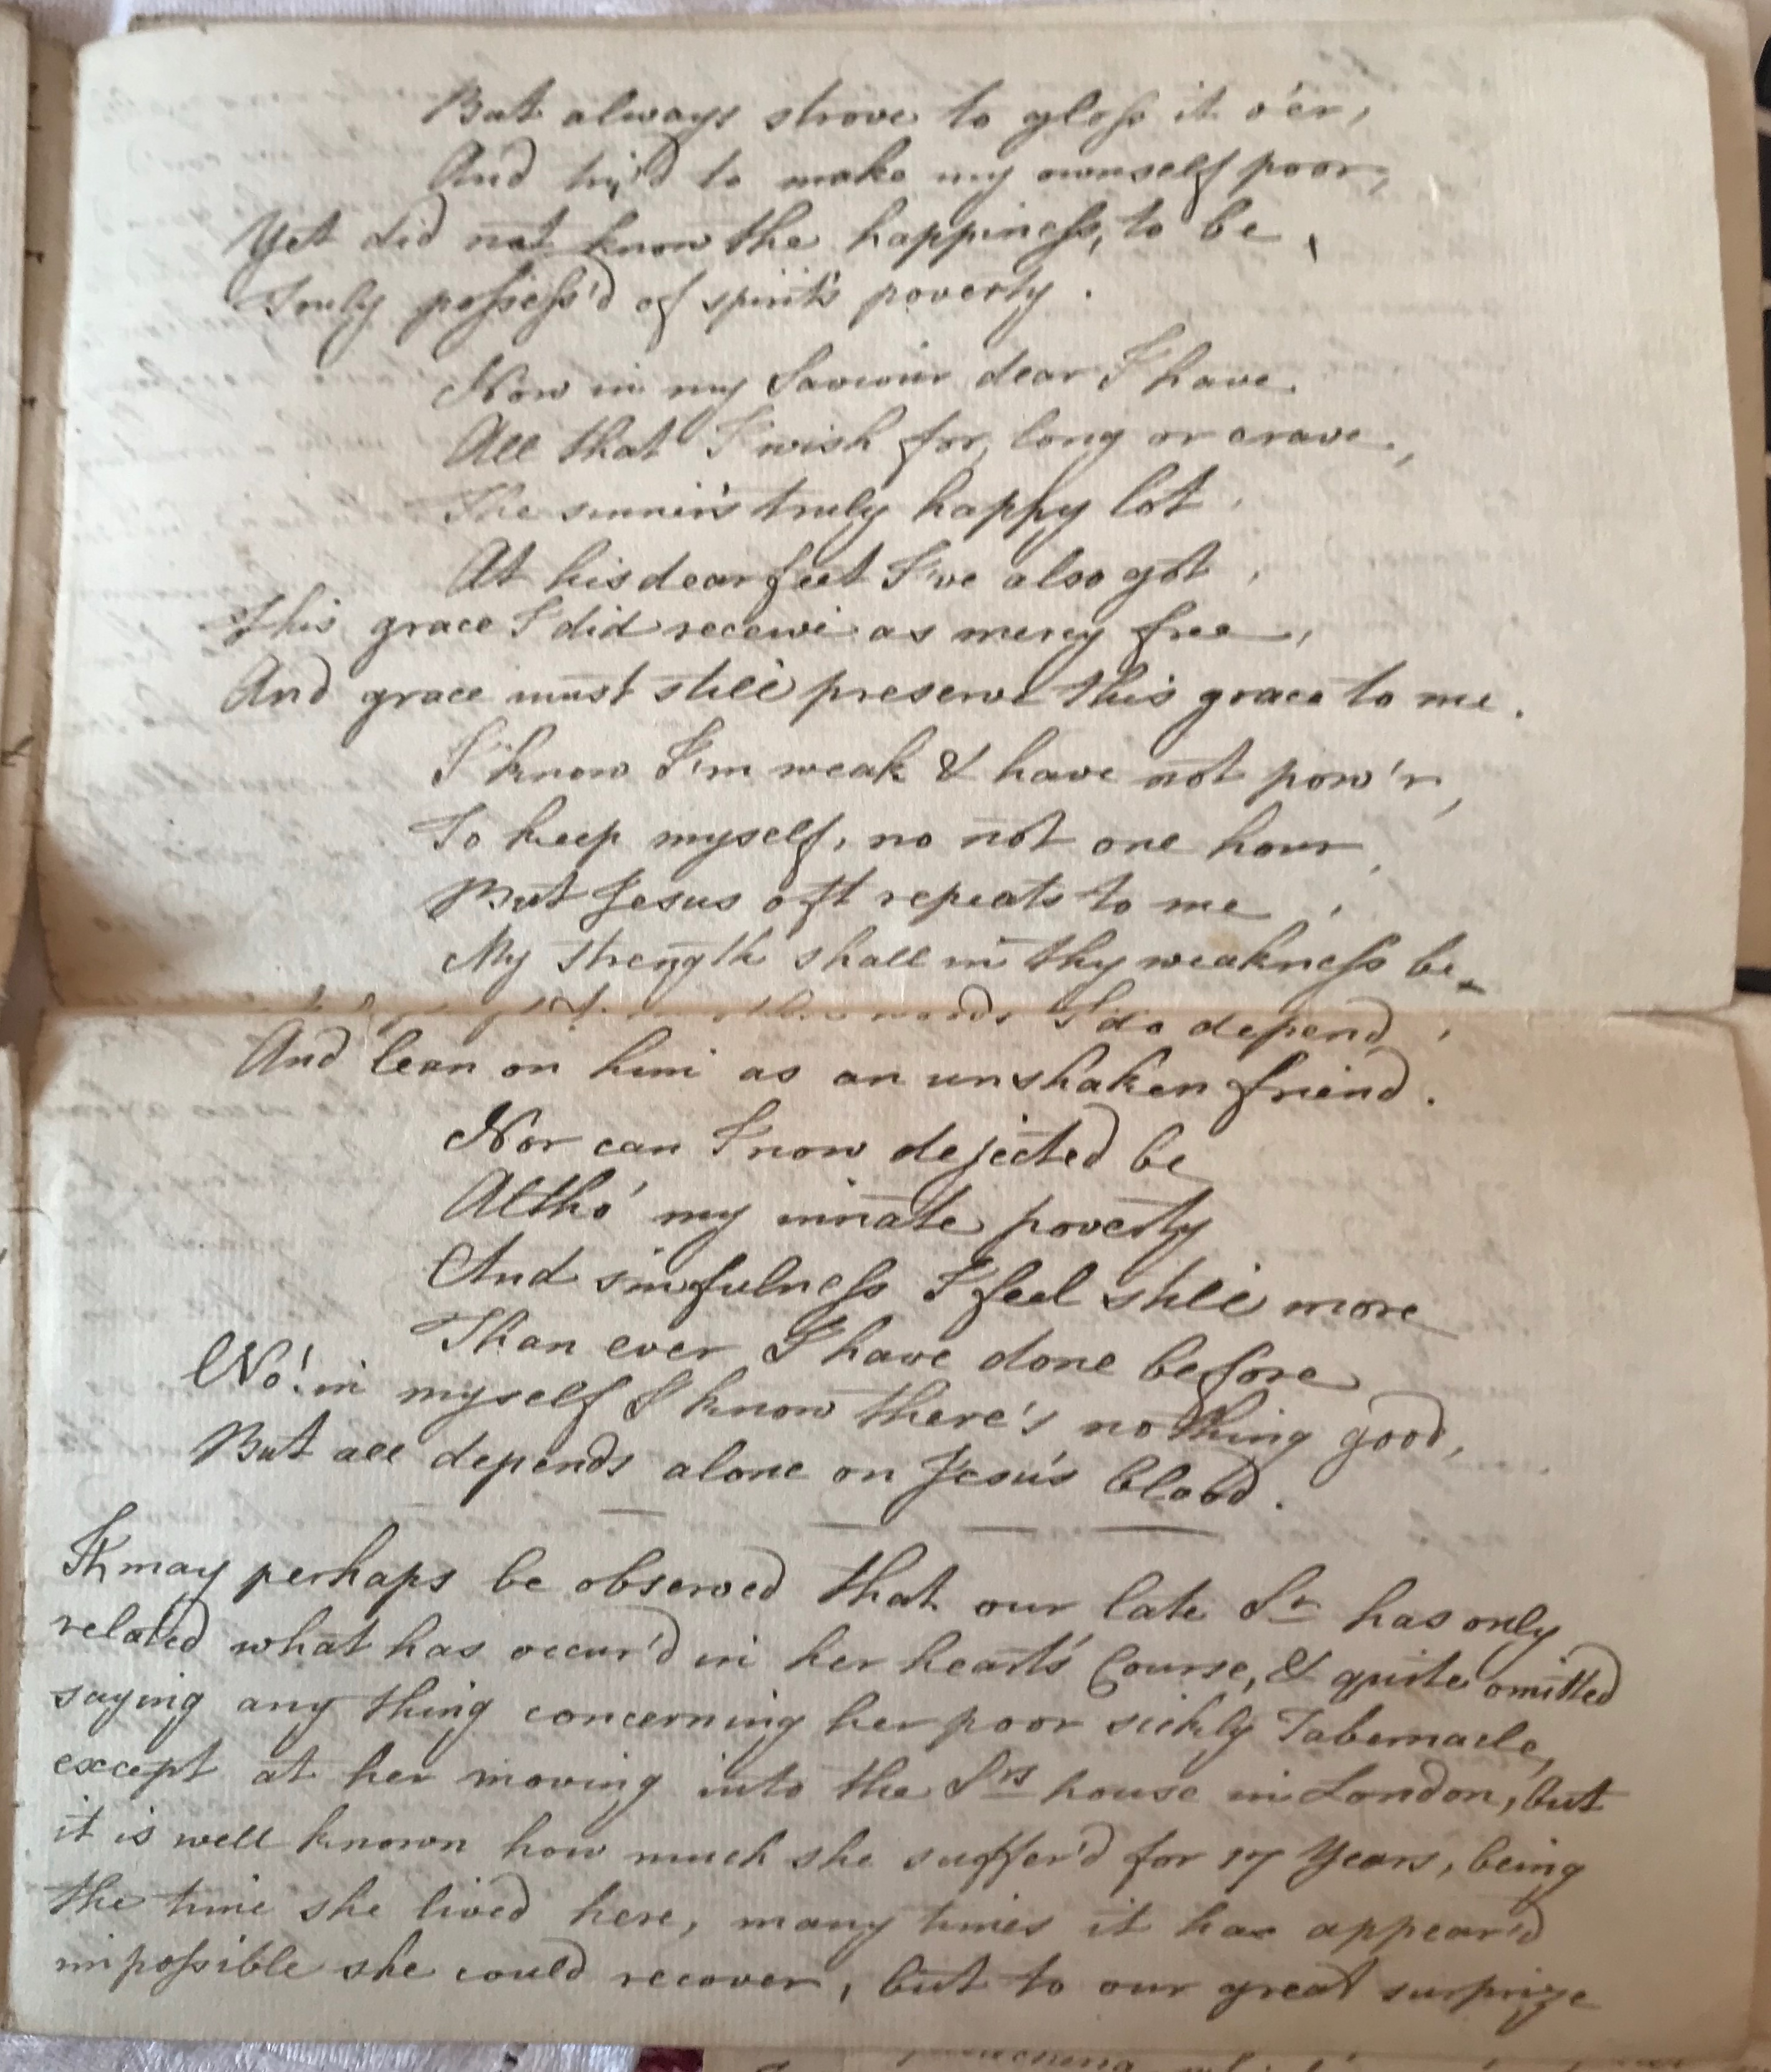 But always strove to gloss it o'er,
And try'd to make my ownself poor,
Yet did not know the happiness, to be,
Truly possess'd of spirit's poverty.
Now in my Saviour dear I have
All that I wish for, long or crave,
The sinner's truly happy lot,
At his dear feet I've also got,
This grace I did receive as mercy free,
And grace must still preserve this grace to me.
I know I'm weak & have not pow'r,
To keep myself, no not one hour,
But Jesus oft repeats to me,
My strength shall in thy weakness be.
words I do depend,
And lean on him as an unshaken friend.
Nor can I now dejected be
Altho' my innate poverty
And sinfulness I feel still more
Than ever I have done before
No! in myself I know there's nothing good,
But all depends alone on Jesu's blood.
It may perhaps be observed that our late Sr has only
related what has occur'd in her heart's Course, & quite omitted
saying any thing concerning her poor sickly Tabernacle,
except at her moving into the Srs house in London, but
it is well known how much she suffer'd for 17 Years, being
the time she lived here, many times it has appear'd
impossible she could recover, but to our great surprize